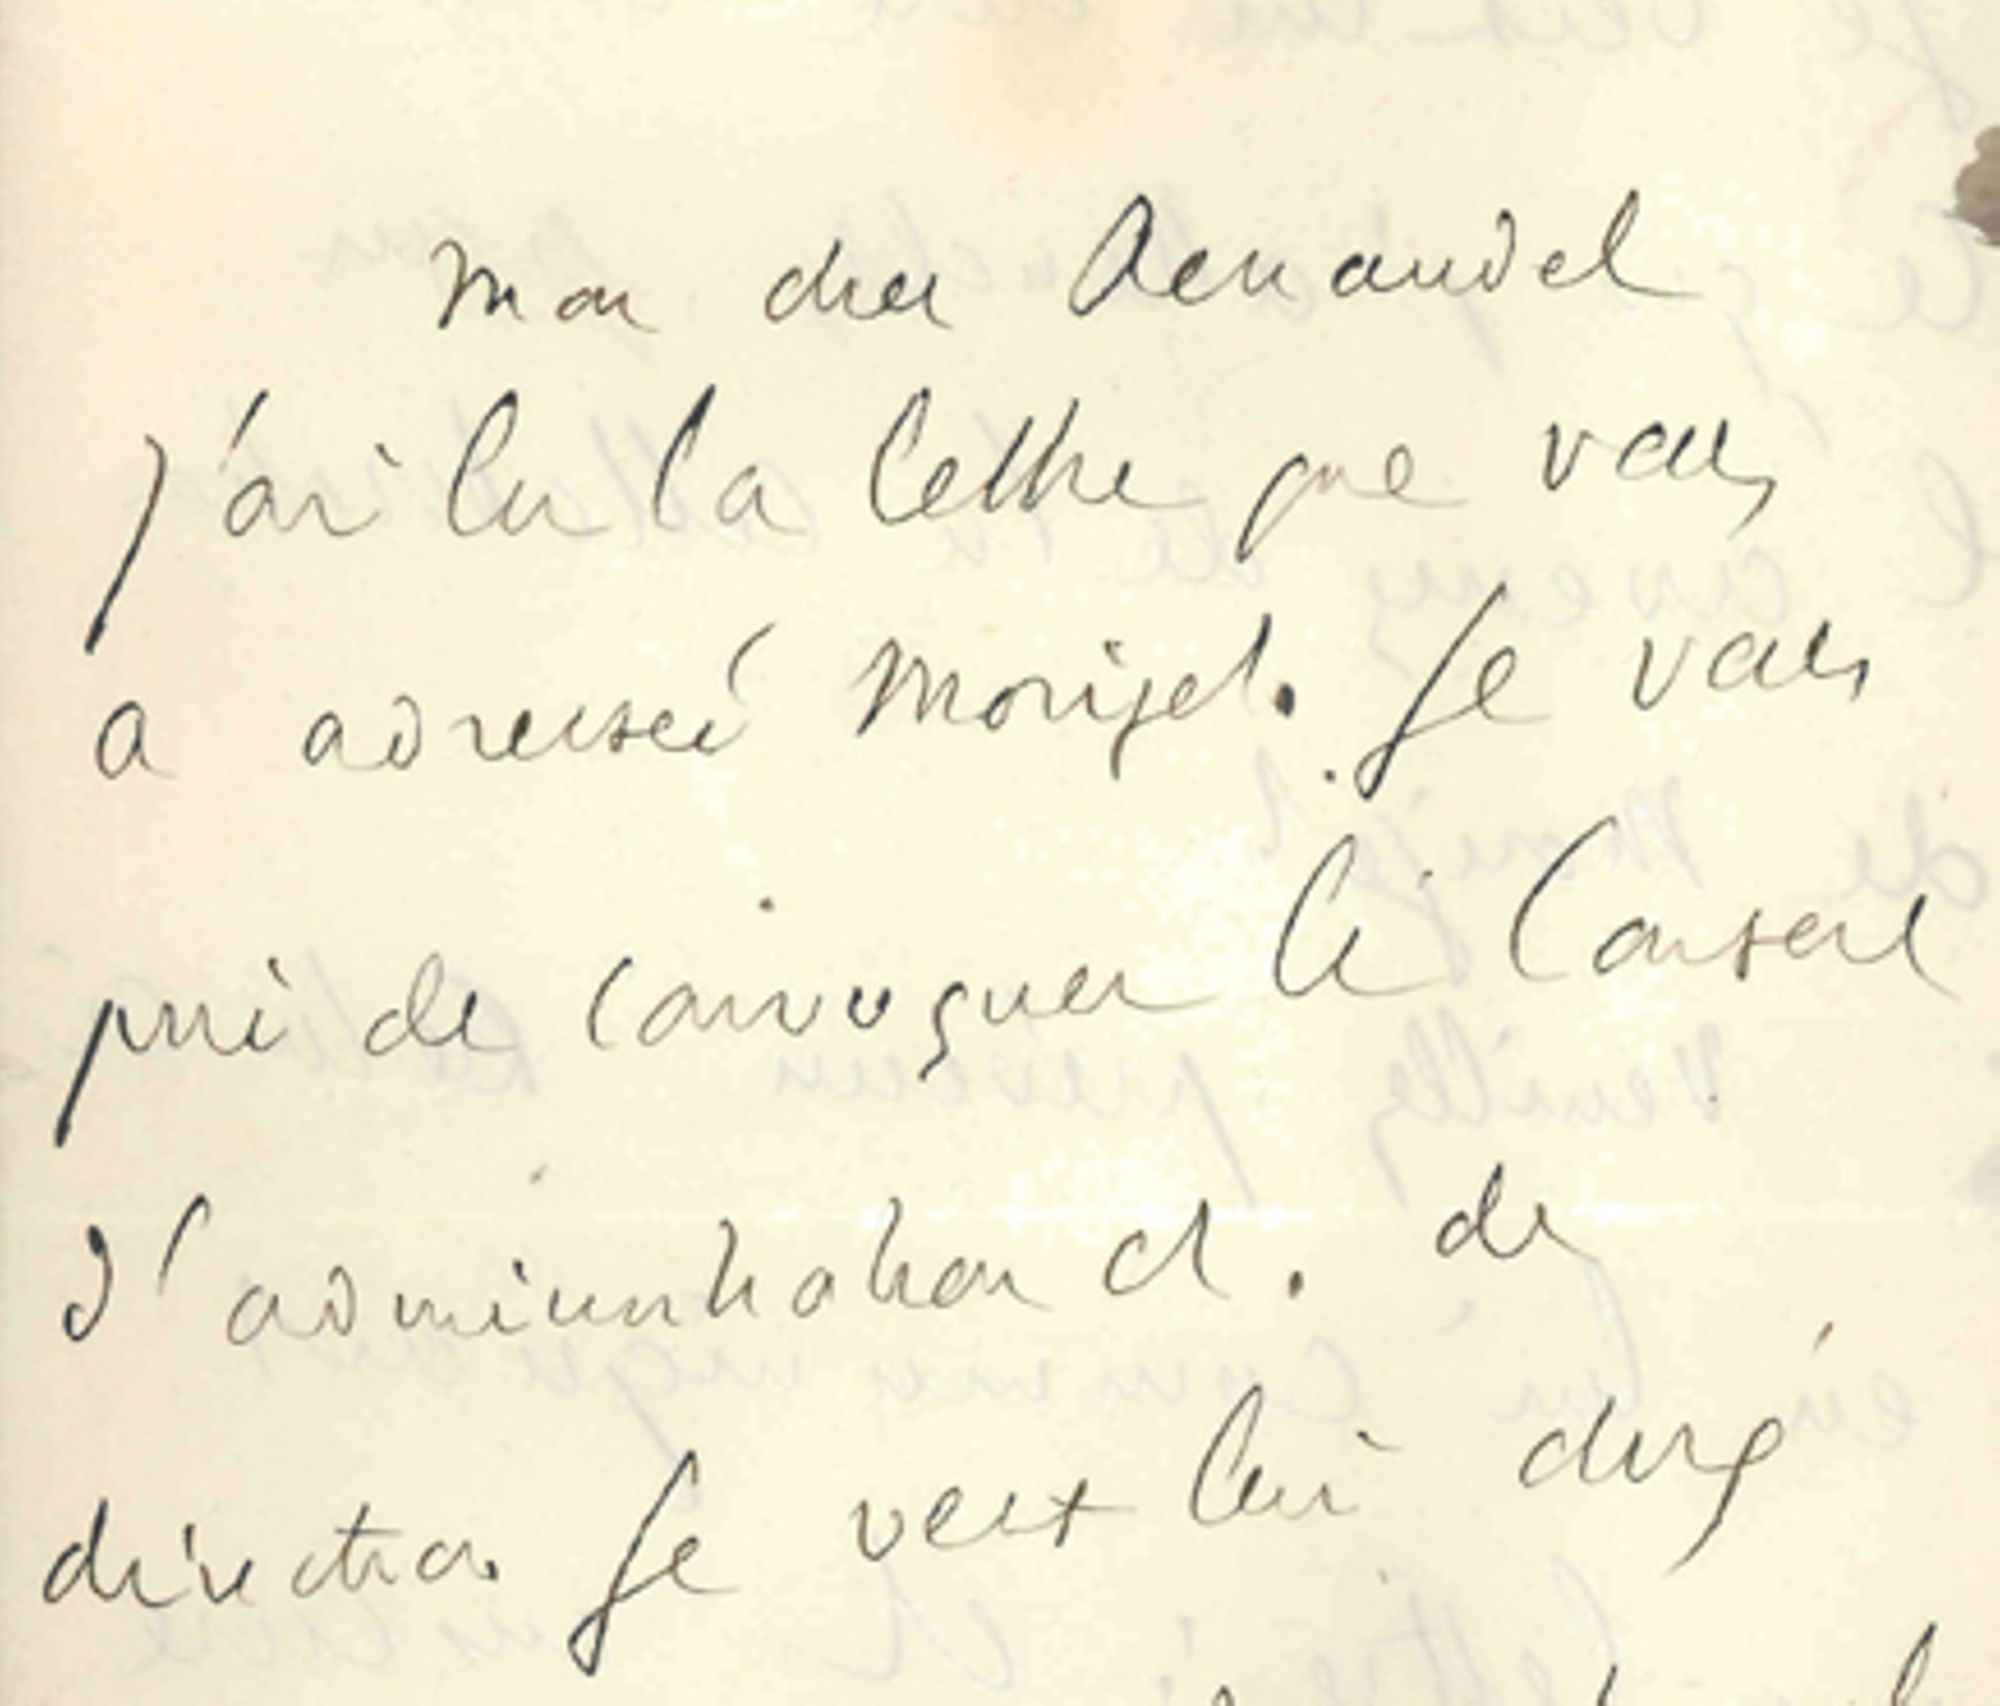 Mon cher Renaudel
J'ai lu la lettre que vous
a adressée Morizet. Je vous
prie de convoquer le Conseil
d'administration et de
direction Je veux lui